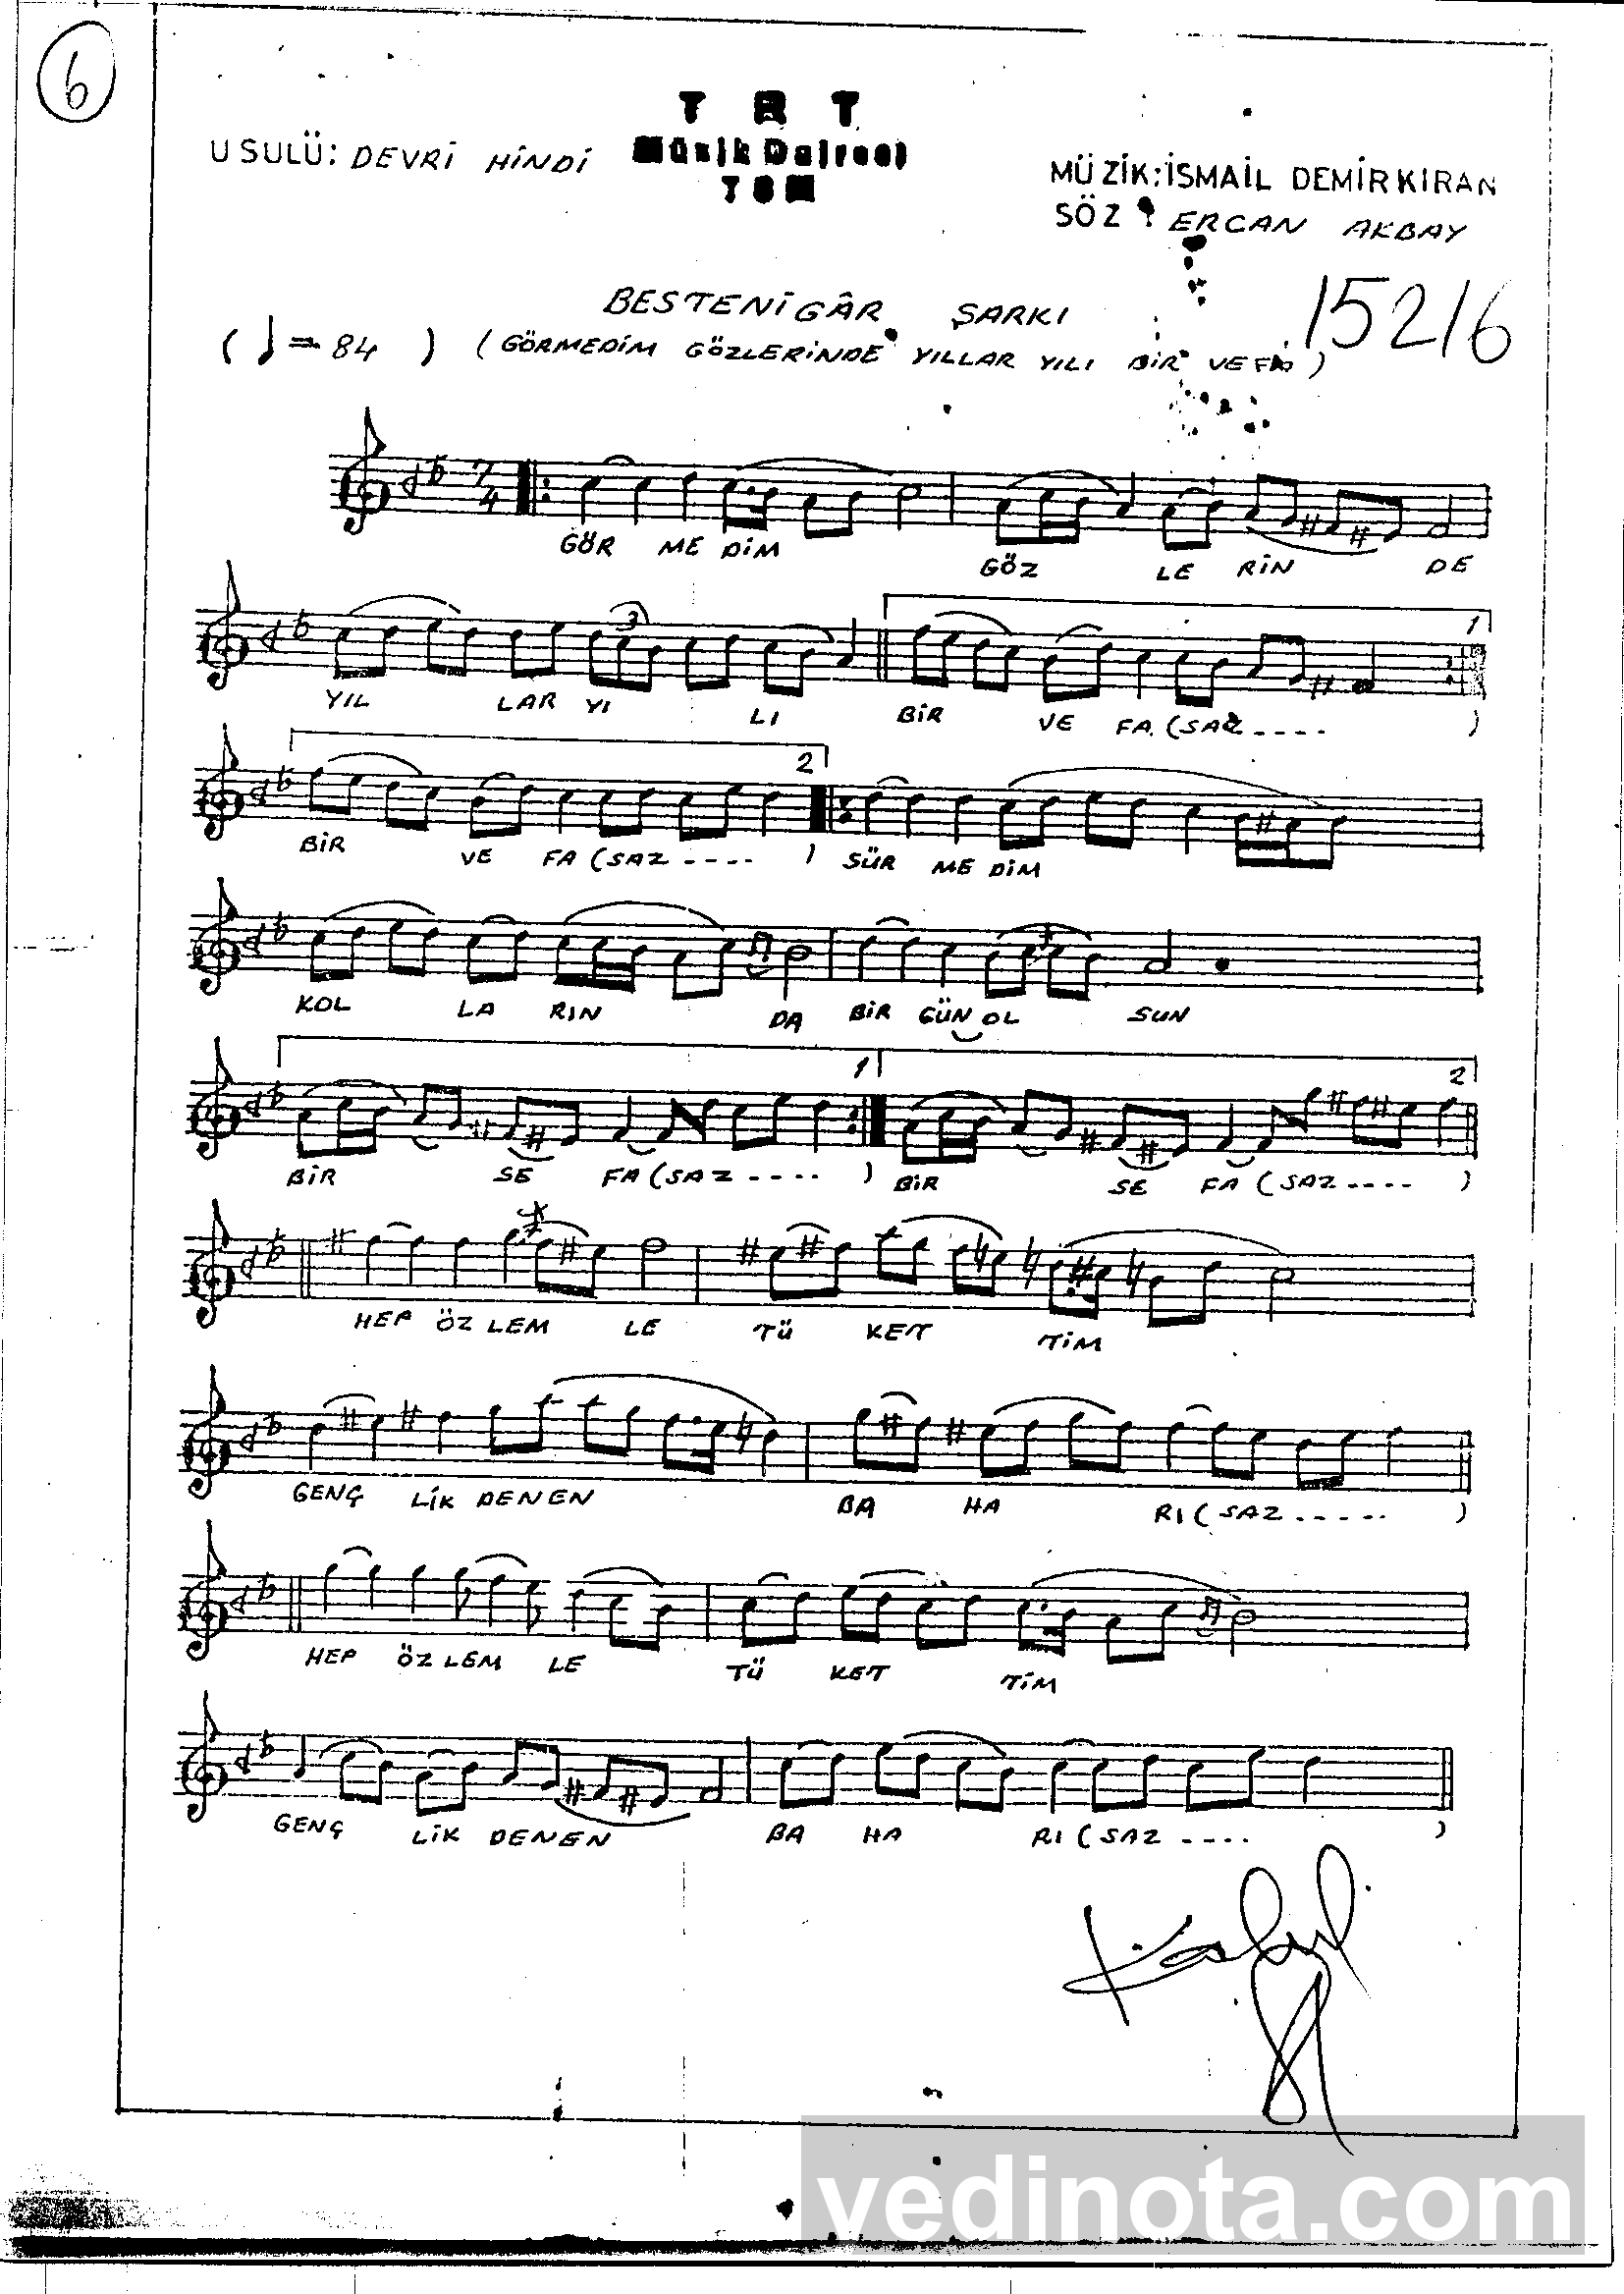 6
T R T
USULÜ: DEVRİ HİNDİ Müzik Dairesi MÜZİK: İSMAİL DEMİRKIRAN
T S M SÖZ : ERCAN AKBAY
BESTENİGÂR ŞARKI 15216
( ♩ = 84 ) (GÖRMEDİM GÖZLERİNDE YILLAR YILI BİR VEFA)
7/4
GÖR ME DİM GÖZ LE RİN DE
3 1
YIL LAR YI LI BİR VE FA (SAZ ---- )
2
BİR VE FA (SAZ ---- ) SÜR ME DİM
KOL LA RIN DA BİR GÜN OL SUN
1 2
BİR SE FA (SAZ ---- ) BİR SE FA (SAZ ---- )
HEP ÖZ LEM LE TÜ KET TİM
GENÇ LİK DENEN BA HA RI (SAZ ----- )
HEP ÖZ LEM LE TÜ KET TİM
GENÇ LİK DENEN BA HA RI (SAZ ---- )
vedinota.com